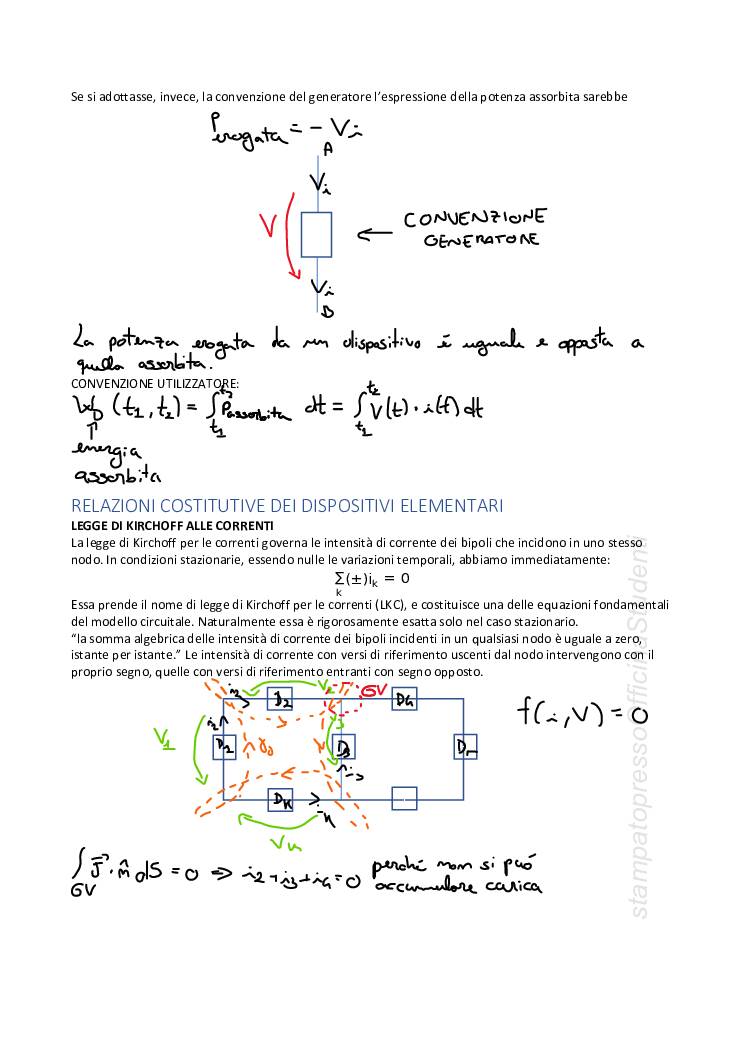 Se si adottasse, invece, la convenzione del generatore l'espressione della potenza assorbita sarebbe
Perogata = - Vi
A
Vi
V
CONVENZIONE
GENERATORE
Vi
B
La potenza erogata da un dispositivo è uguale e opposta a
quella assorbita.
CONVENZIONE UTILIZZATORE:
(t1, t2) = ∫t1t2 Passorbita dt = ∫t1t2 V(t) · i(t) dt
energia
assorbita
RELAZIONI COSTITUTIVE DEI DISPOSITIVI ELEMENTARI
LEGGE DI KIRCHOFF ALLE CORRENTI
La legge di Kirchoff per le correnti governa le intensità di corrente dei bipoli che incidono in uno stesso
nodo. In condizioni stazionarie, essendo nulle le variazioni temporali, abbiamo immediatamente:
∑k(±)ik = 0
Essa prende il nome di legge di Kirchoff per le correnti (LKC), e costituisce una delle equazioni fondamentali
del modello circuitale. Naturalmente essa è rigorosamente esatta solo nel caso stazionario.
“la somma algebrica delle intensità di corrente dei bipoli incidenti in un qualsiasi nodo è uguale a zero,
istante per istante.” Le intensità di corrente con versi di riferimento uscenti dal nodo intervengono con il
proprio segno, quelle con versi di riferimento entranti con segno opposto.
i2 D2 D4
f(i,V) = 0
V1 D3
i3
DK
VK
∫ J · n dS = 0 ⇒ i2+i3+i4=0 perché non si può
accumulare carica
stampatopressoofficinaStudenti